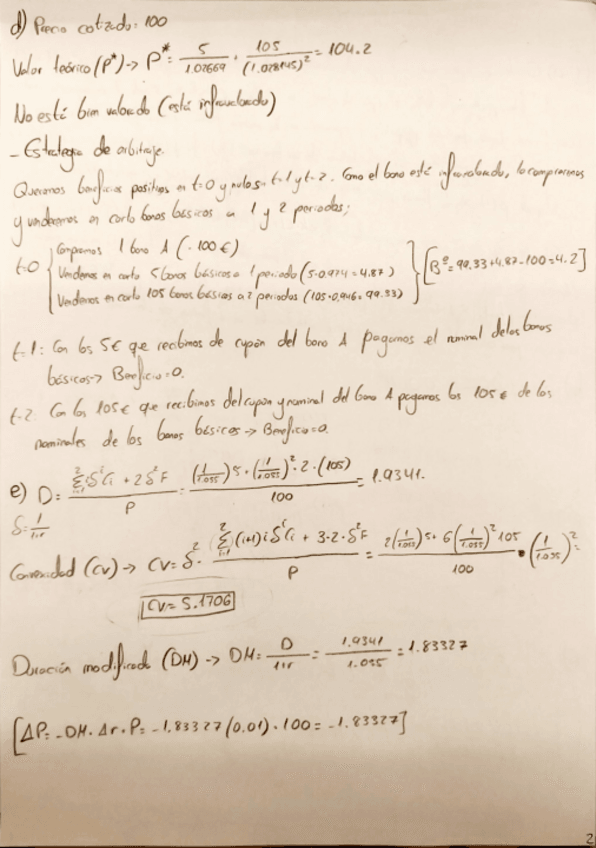 d) Precio cotizado: 100
Valor teórico (P*) -> P* = 5/1.02669 + 105/(1.028145)² = 104.2
No está bien valorado (está infravalorado)
- Estrategia de arbitraje.
Queremos beneficios positivos en t=0 y nulos en t=1 y t=2. Como el bono está infravalorado, lo compraremos
y venderemos en corto bonos básicos a 1 y 2 periodos;
t=0 { Compramos 1 bono A (-100€)
Vendemos en corto 5 bonos básicos a 1 periodo (5·0,974 = 4.87)
Vendemos en corto 105 bonos básicos a 2 periodos (105·0,946 = 99.33) } [Bº = 99.33 + 4.87 - 100 = 4.2]
t=1: Con los 5€ que recibimos de cupón del bono A pagamos el nominal de los bonos
básicos -> Beneficio = 0.
t=2: Con los 105€ que recibimos del cupón y nominal del bono A pagamos los 105€ de los
nominales de los bonos básicos -> Beneficio = 0.
e) D = (Σ² i=1 i δⁱ Ci + 2δ²F)/P = ((1/1.055)5 + (1/1.055)²·2·(105))/100 = 1.9341.
δ = 1/1+r
Convexidad (CV) -> CV = δ² · (Σ² i=1 (i+1) i δⁱ Ci + 3·2·δ²F)/P = (2(1/1.055)5 + 6(1/1.055)²105)/100 · (1/1.055)² =
CV = 5.1706
Duración modificada (DM) -> DM = D/1+r = 1.9341/1.055 = 1.83327
[ΔP = -DM · Δr · P = -1.83327 (0.01) · 100 = -1.83327]
2